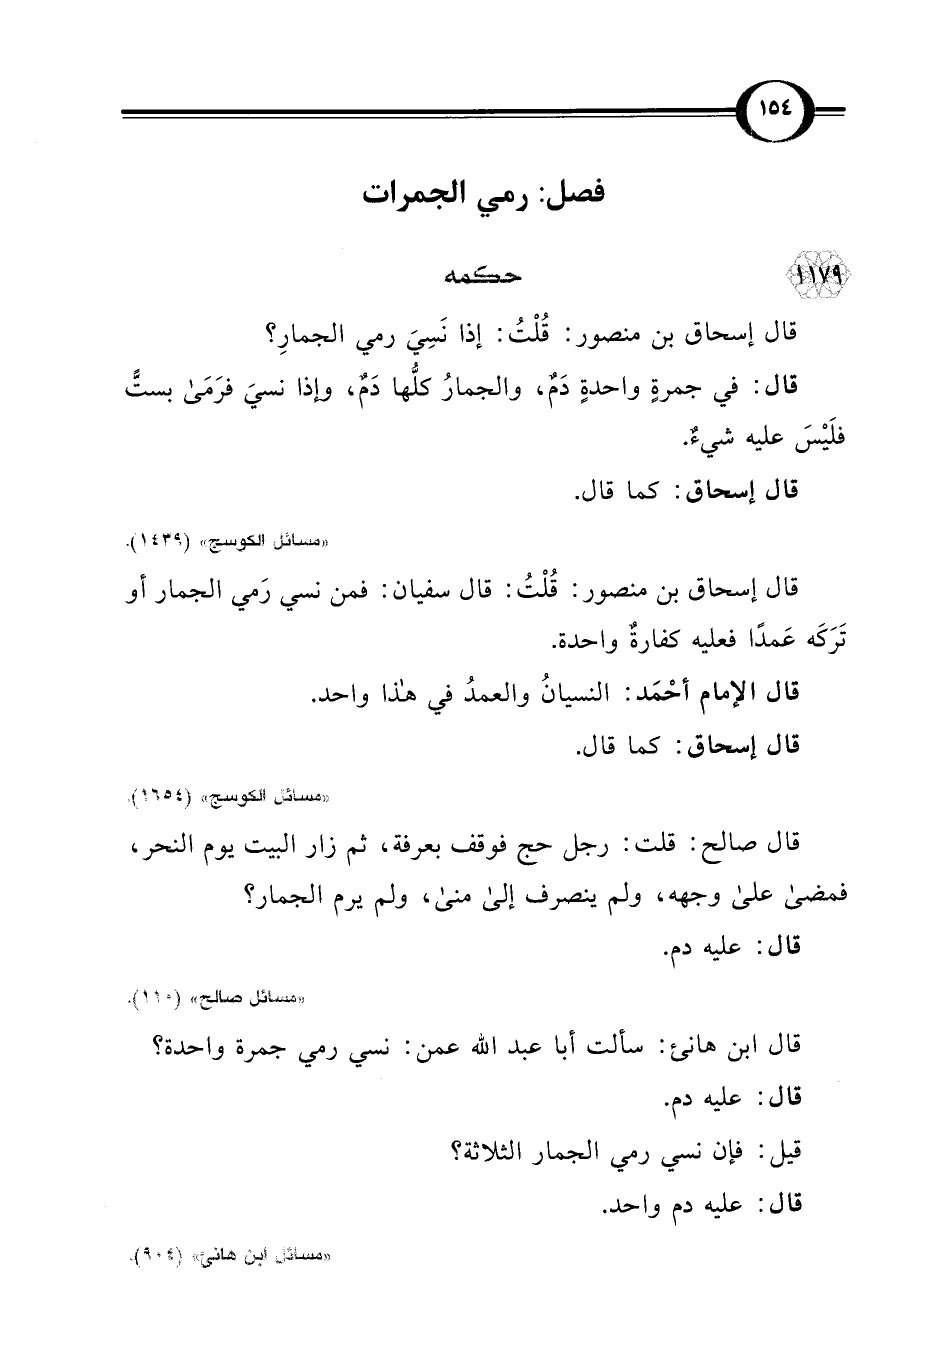 ١٥٤
فصل: رمي الجمرات
١١٧٩
حكمه
قال إسحاق بن منصور: قُلْتُ: إذا نَسِيَ رمي الجمارِ؟
قال: في جمرةٍ واحدةٍ دَمٌ، والجمارُ كلُّها دَمٌ، وإذا نسيَ فرَمَىٰ بستٍّ
فلَيْسَ عليه شيءٌ.
قال إسحاق: كما قال.
«مسائل الكوسج» (١٤٣٩).
قال إسحاق بن منصور: قُلْتُ: قال سفيان: فمن نسي رَمي الجمار أو
تَرَكَه عَمدًا فعليه كفارةٌ واحدة.
قال الإمام أحْمَد: النسيانُ والعمدُ في هٰذا واحد.
قال إسحاق: كما قال.
«مسائل الكوسج» (١٦٥٤).
قال صالح: قلت: رجل حج فوقف بعرفة، ثم زار البيت يوم النحر،
فمضىٰ علىٰ وجهه، ولم ينصرف إلىٰ منىٰ، ولم يرم الجمار؟
قال: عليه دم.
«مسائل صالح» (١١٦٠).
قال ابن هانئ: سألت أبا عبد الله عمن: نسي رمي جمرة واحدة؟
قال: عليه دم.
قيل: فإن نسي رمي الجمار الثلاثة؟
قال: عليه دم واحد.
«مسائل ابن هانئ» (٩٠٤).